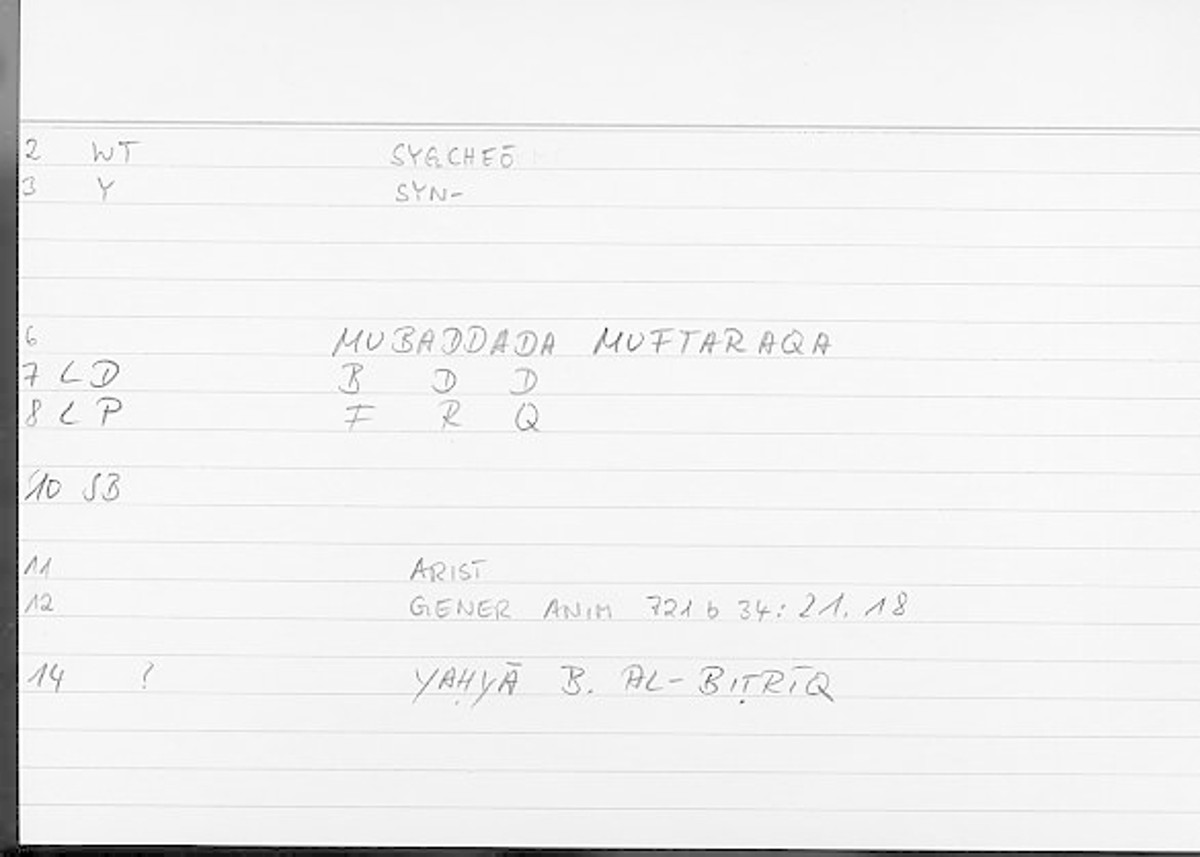 2 WT SYGCHEŌ
3 Y SYN-
6 MUBADDADA MUFTARAQA
7 LD B D D
8 LP F R Q
10 SB
11 ARIST
12 GENER ANIM 721 b 34: 21. 18
14 ? YAḤYĀ B. AL-BIṬRĪQ